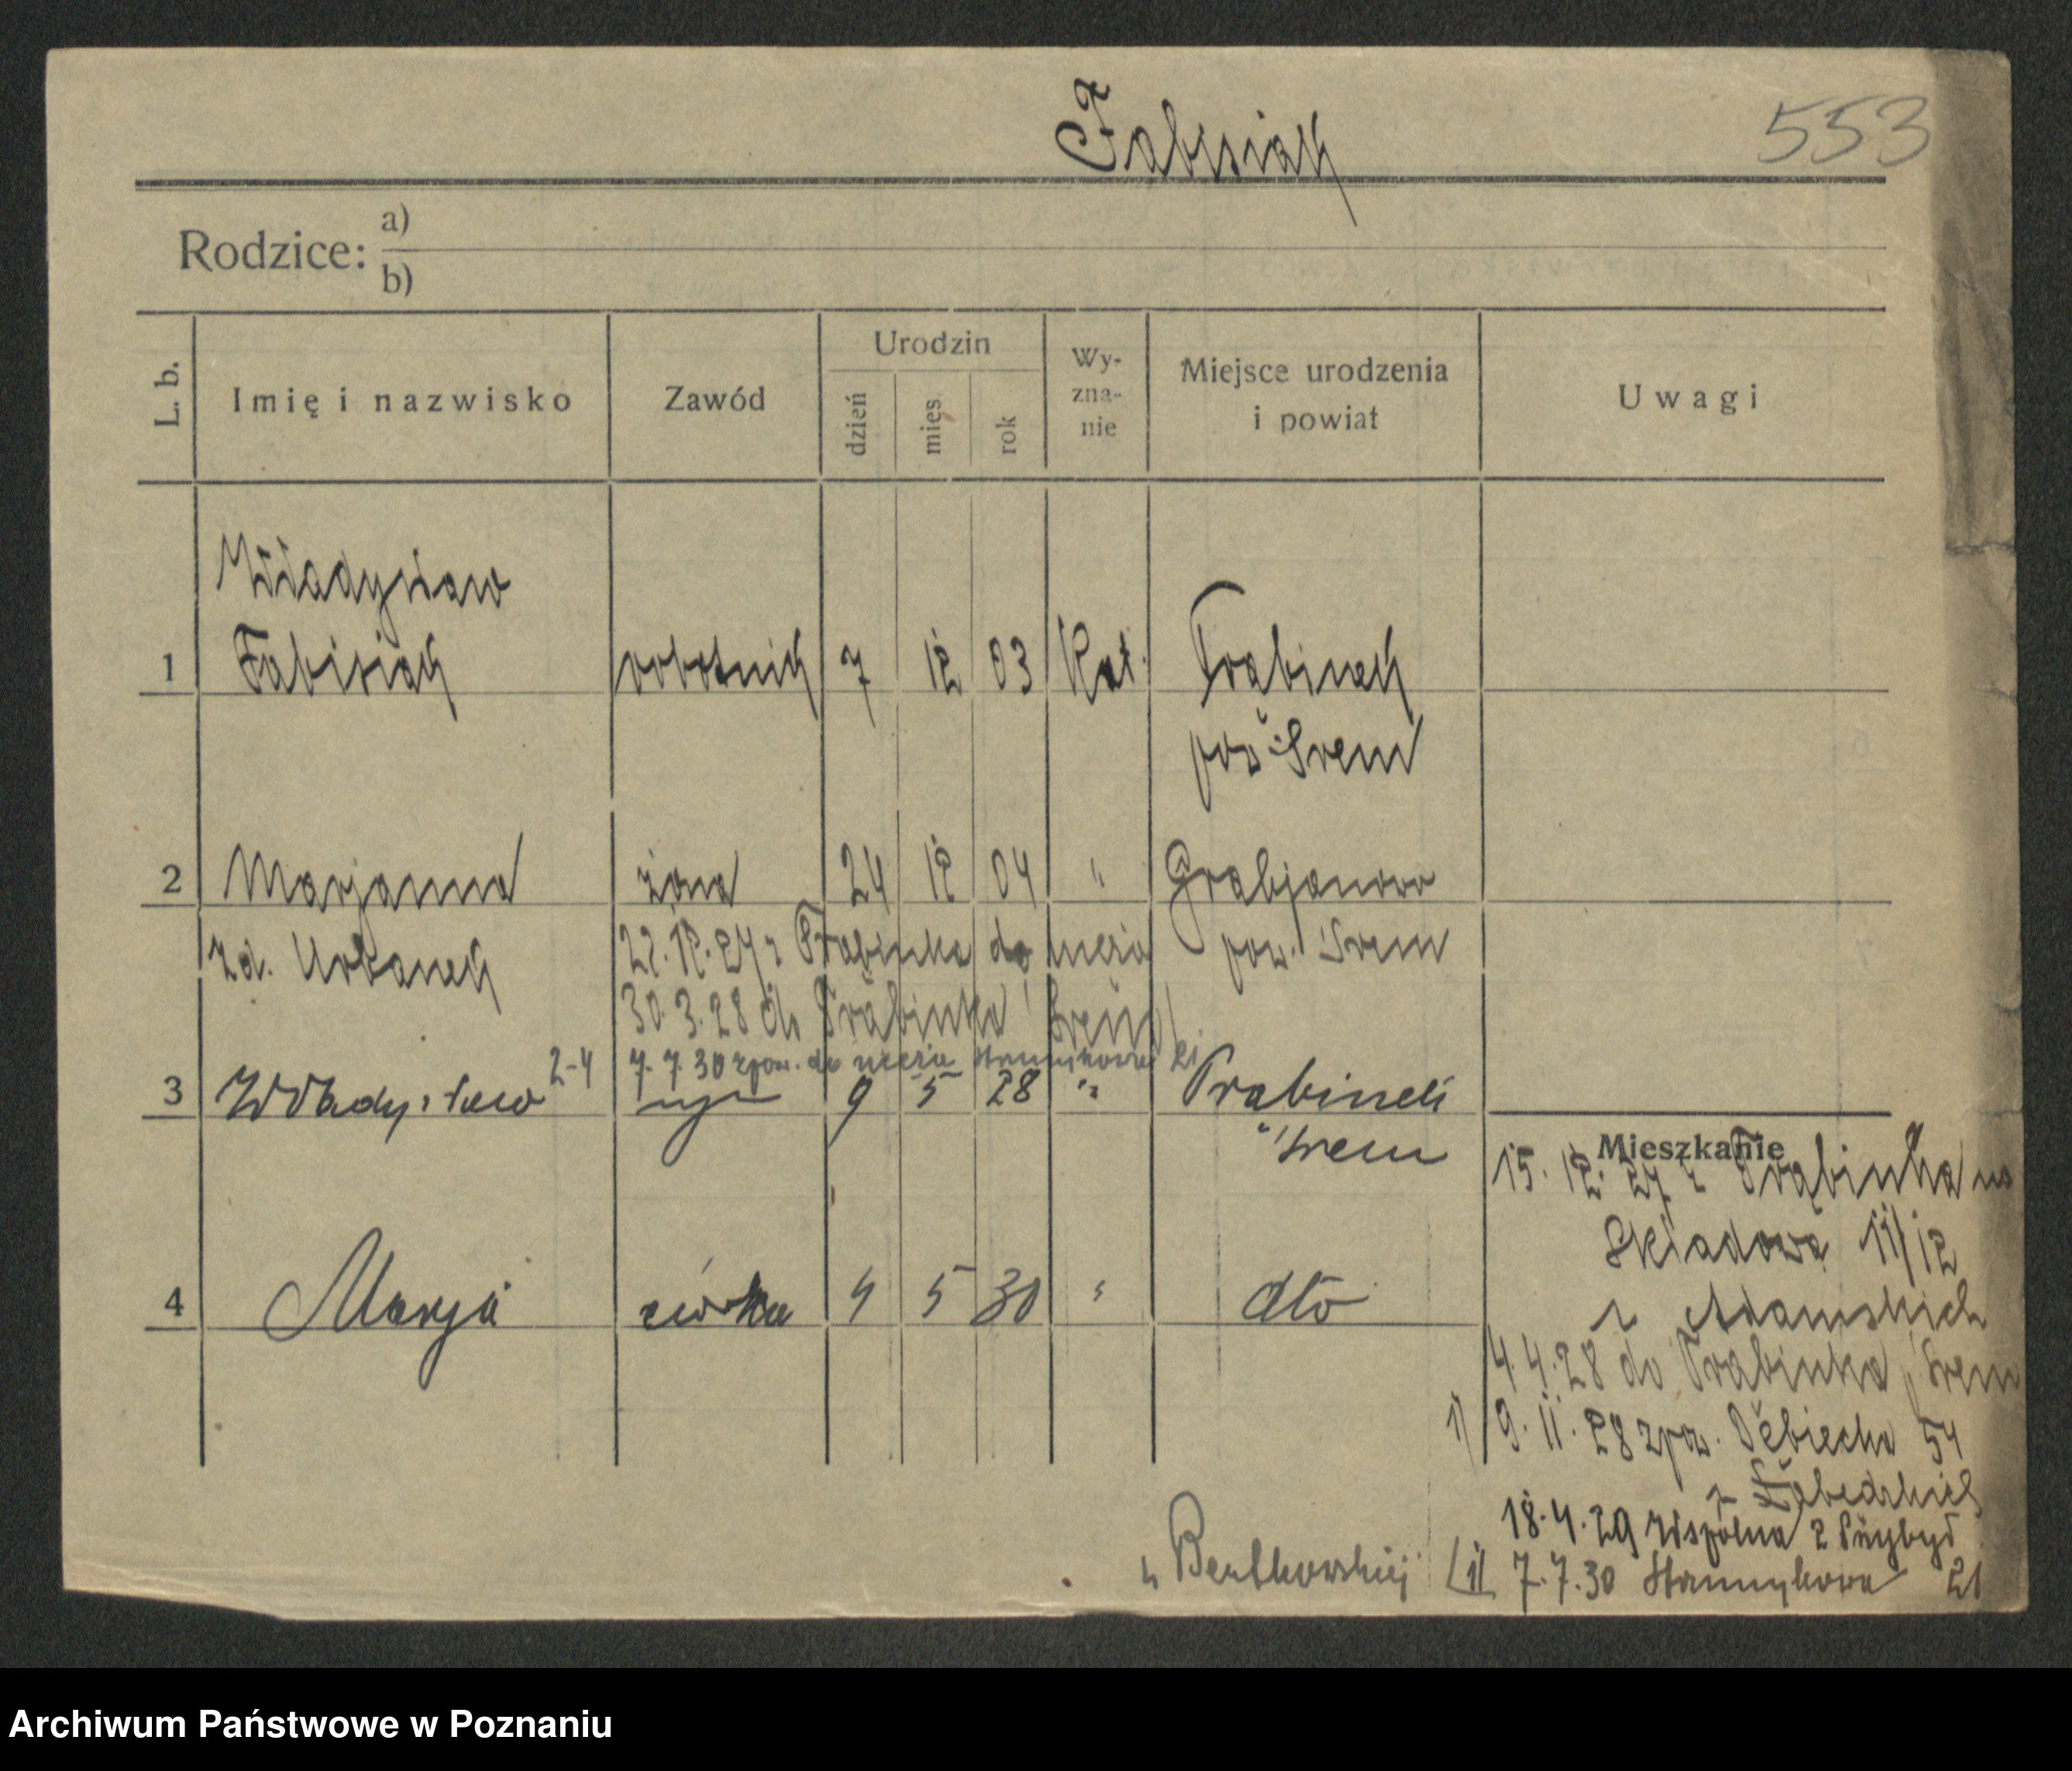 Fabisiak
553
Rodzice: a)
b)
L. b. Imię i nazwisko Zawód Urodzin dzień mies. rok Wyznanie Miejsce urodzenia i powiat Uwagi
Władysław
1 Fabisiak robotnik 7 12 03 Kat. Trąbinek
pow Śrem
2 Marjanna żona 24 12 04 " Grabjanowo
zd. Urbanek pow. Śrem
22.12.27 z Trąbinka do męża
30.3.28 do Trąbinka Śrem
2-4 7.7.30 zpow. do męża 21
3 Władysław syn 9 5 28 " Trąbinek
Śrem
Mieszkanie
15.12.27 z Trąbinka na
Składowa 11/12
z Adamskich
4 Marja córka 4 5 30 " dto
4.4.28 do Trąbinka, Śrem
1) 9.11.28 zpow. Dębiecka 54
18.4.29 Wspólna 2 Przybył
u Bentkowskiej 1) 7.7.30 21
Archiwum Państwowe w Poznaniu